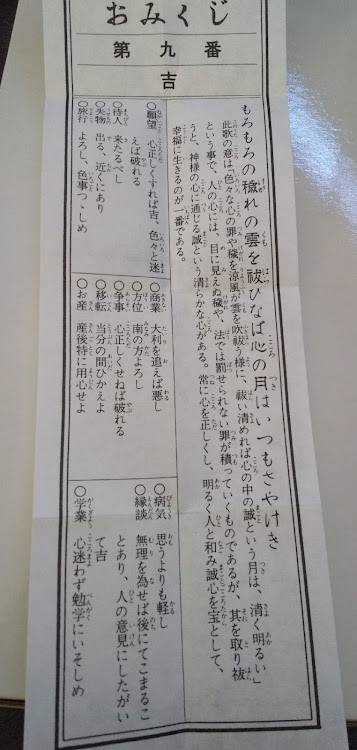 おみくじ
第九番
吉
もろもろの穢れの雲を祓ひなば心の月はいつもさやけき
此歌の意は「色々な心の罪や穢を涼風が雲を吹祓う様に、祓い清めれば心の中の誠という月は、清く明るい」
という事で、人の心には、目に見えぬ穢や、法では罰せられない罪が積っていくものであるが、其を取り祓
うと、神様の心に通じる誠という清らかな心がある。常に心を正しくし、明るく人と和み誠心を宝として、
幸福に生きるのが一番である。
○願望 心正しくすれば吉、色々と迷
えば破れる
○待人 来たるべし
○失物 出る、近くにあり
○旅行 よろし、色事つゝしめ
○商業 大利を追えば悪し
○方位 南の方よろし
○争事 心正しくせねば破れる
○移転 当分の間ひかえよ
○お産 産後特に用心せよ
○病気 思うよりも軽し
○縁談 無理を為せば後にてこまるこ
とあり、人の意見にしたがい
て吉
○学業 心迷わず勉学にいそしめ